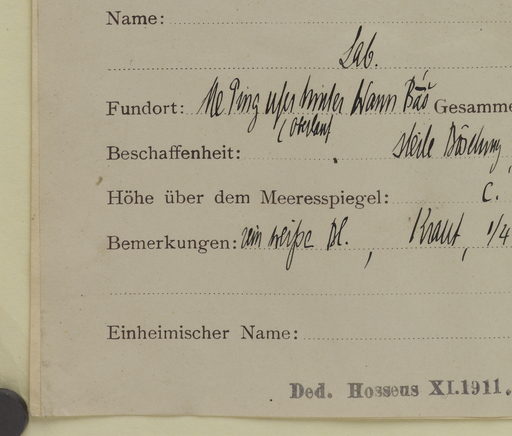 Name:
Lab.
Fundort: Me Ping ufer hinter Wann Gesamme
(Oberlauf
Beschaffenheit: steile Böschung,
Höhe über dem Meeresspiegel: C.
Bemerkungen: rein weiße Bl., Kraut, 1/4
Einheimischer Name:
Ded. Hosseus XI.1911.